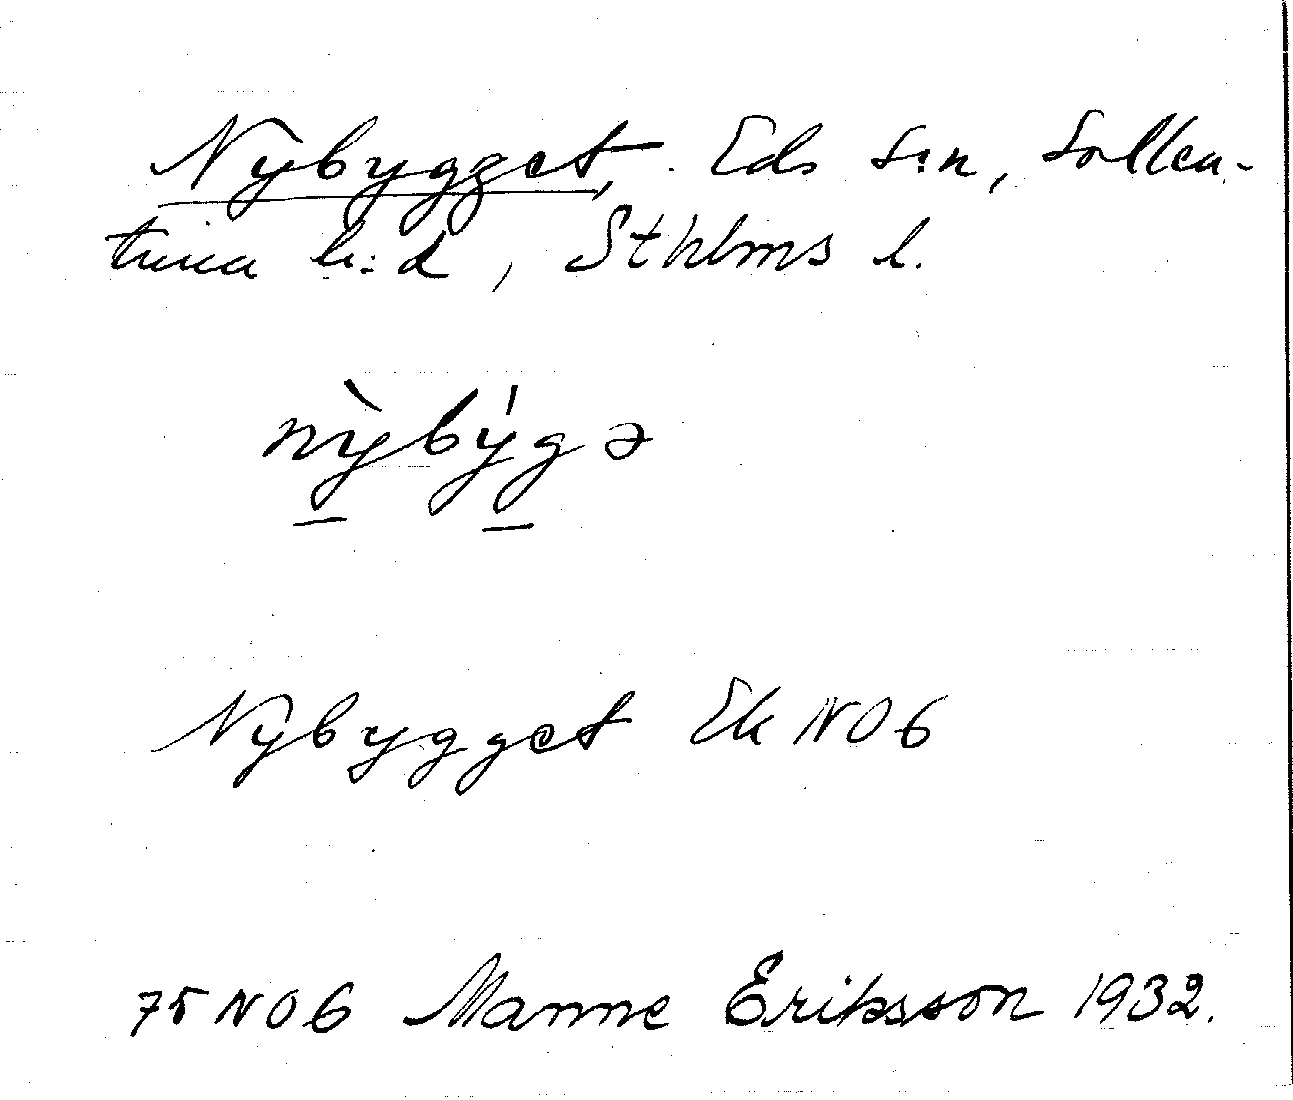 Nybygget, Eds s:n, Sollen-
tuna h:d, Sthlms l.
nỳbýgə
Nybygget Ek NO6
75 NO6 Manne Eriksson 1932.